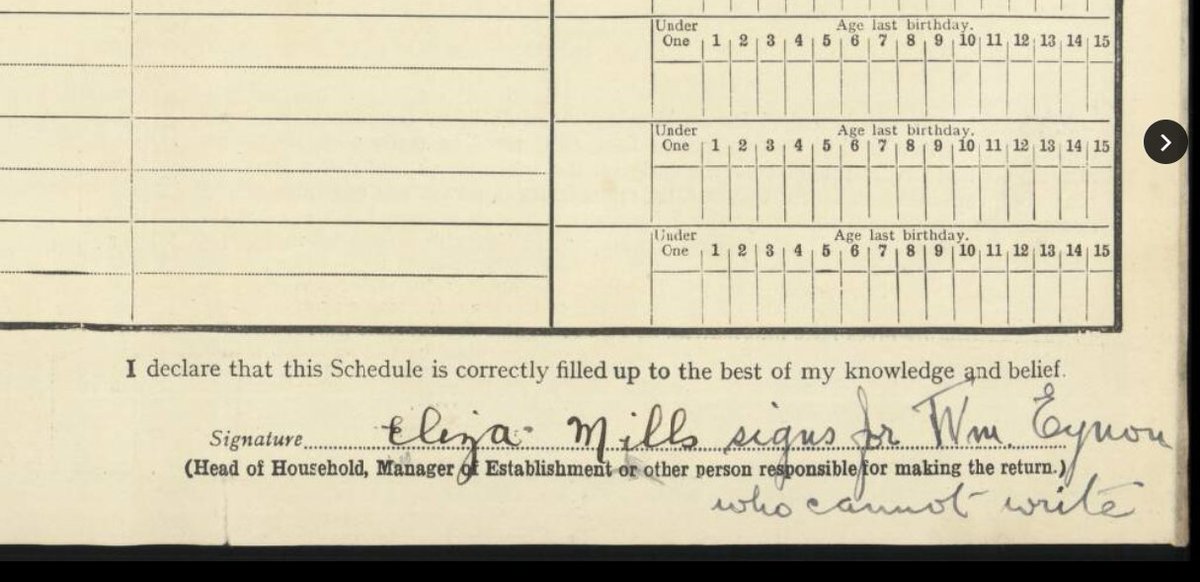 Under Age last birthday.
One 1 2 3 4 5 6 7 8 9 10 11 12 13 14 15
Under Age last birthday.
One 1 2 3 4 5 6 7 8 9 10 11 12 13 14 15
Under Age last birthday.
One 1 2 3 4 5 6 7 8 9 10 11 12 13 14 15
I declare that this Schedule is correctly filled up to the best of my knowledge and belief.
Signature Eliza Mills signs for Wm. Eynon
(Head of Household, Manager of Establishment or other person responsible for making the return.)
who cannot write